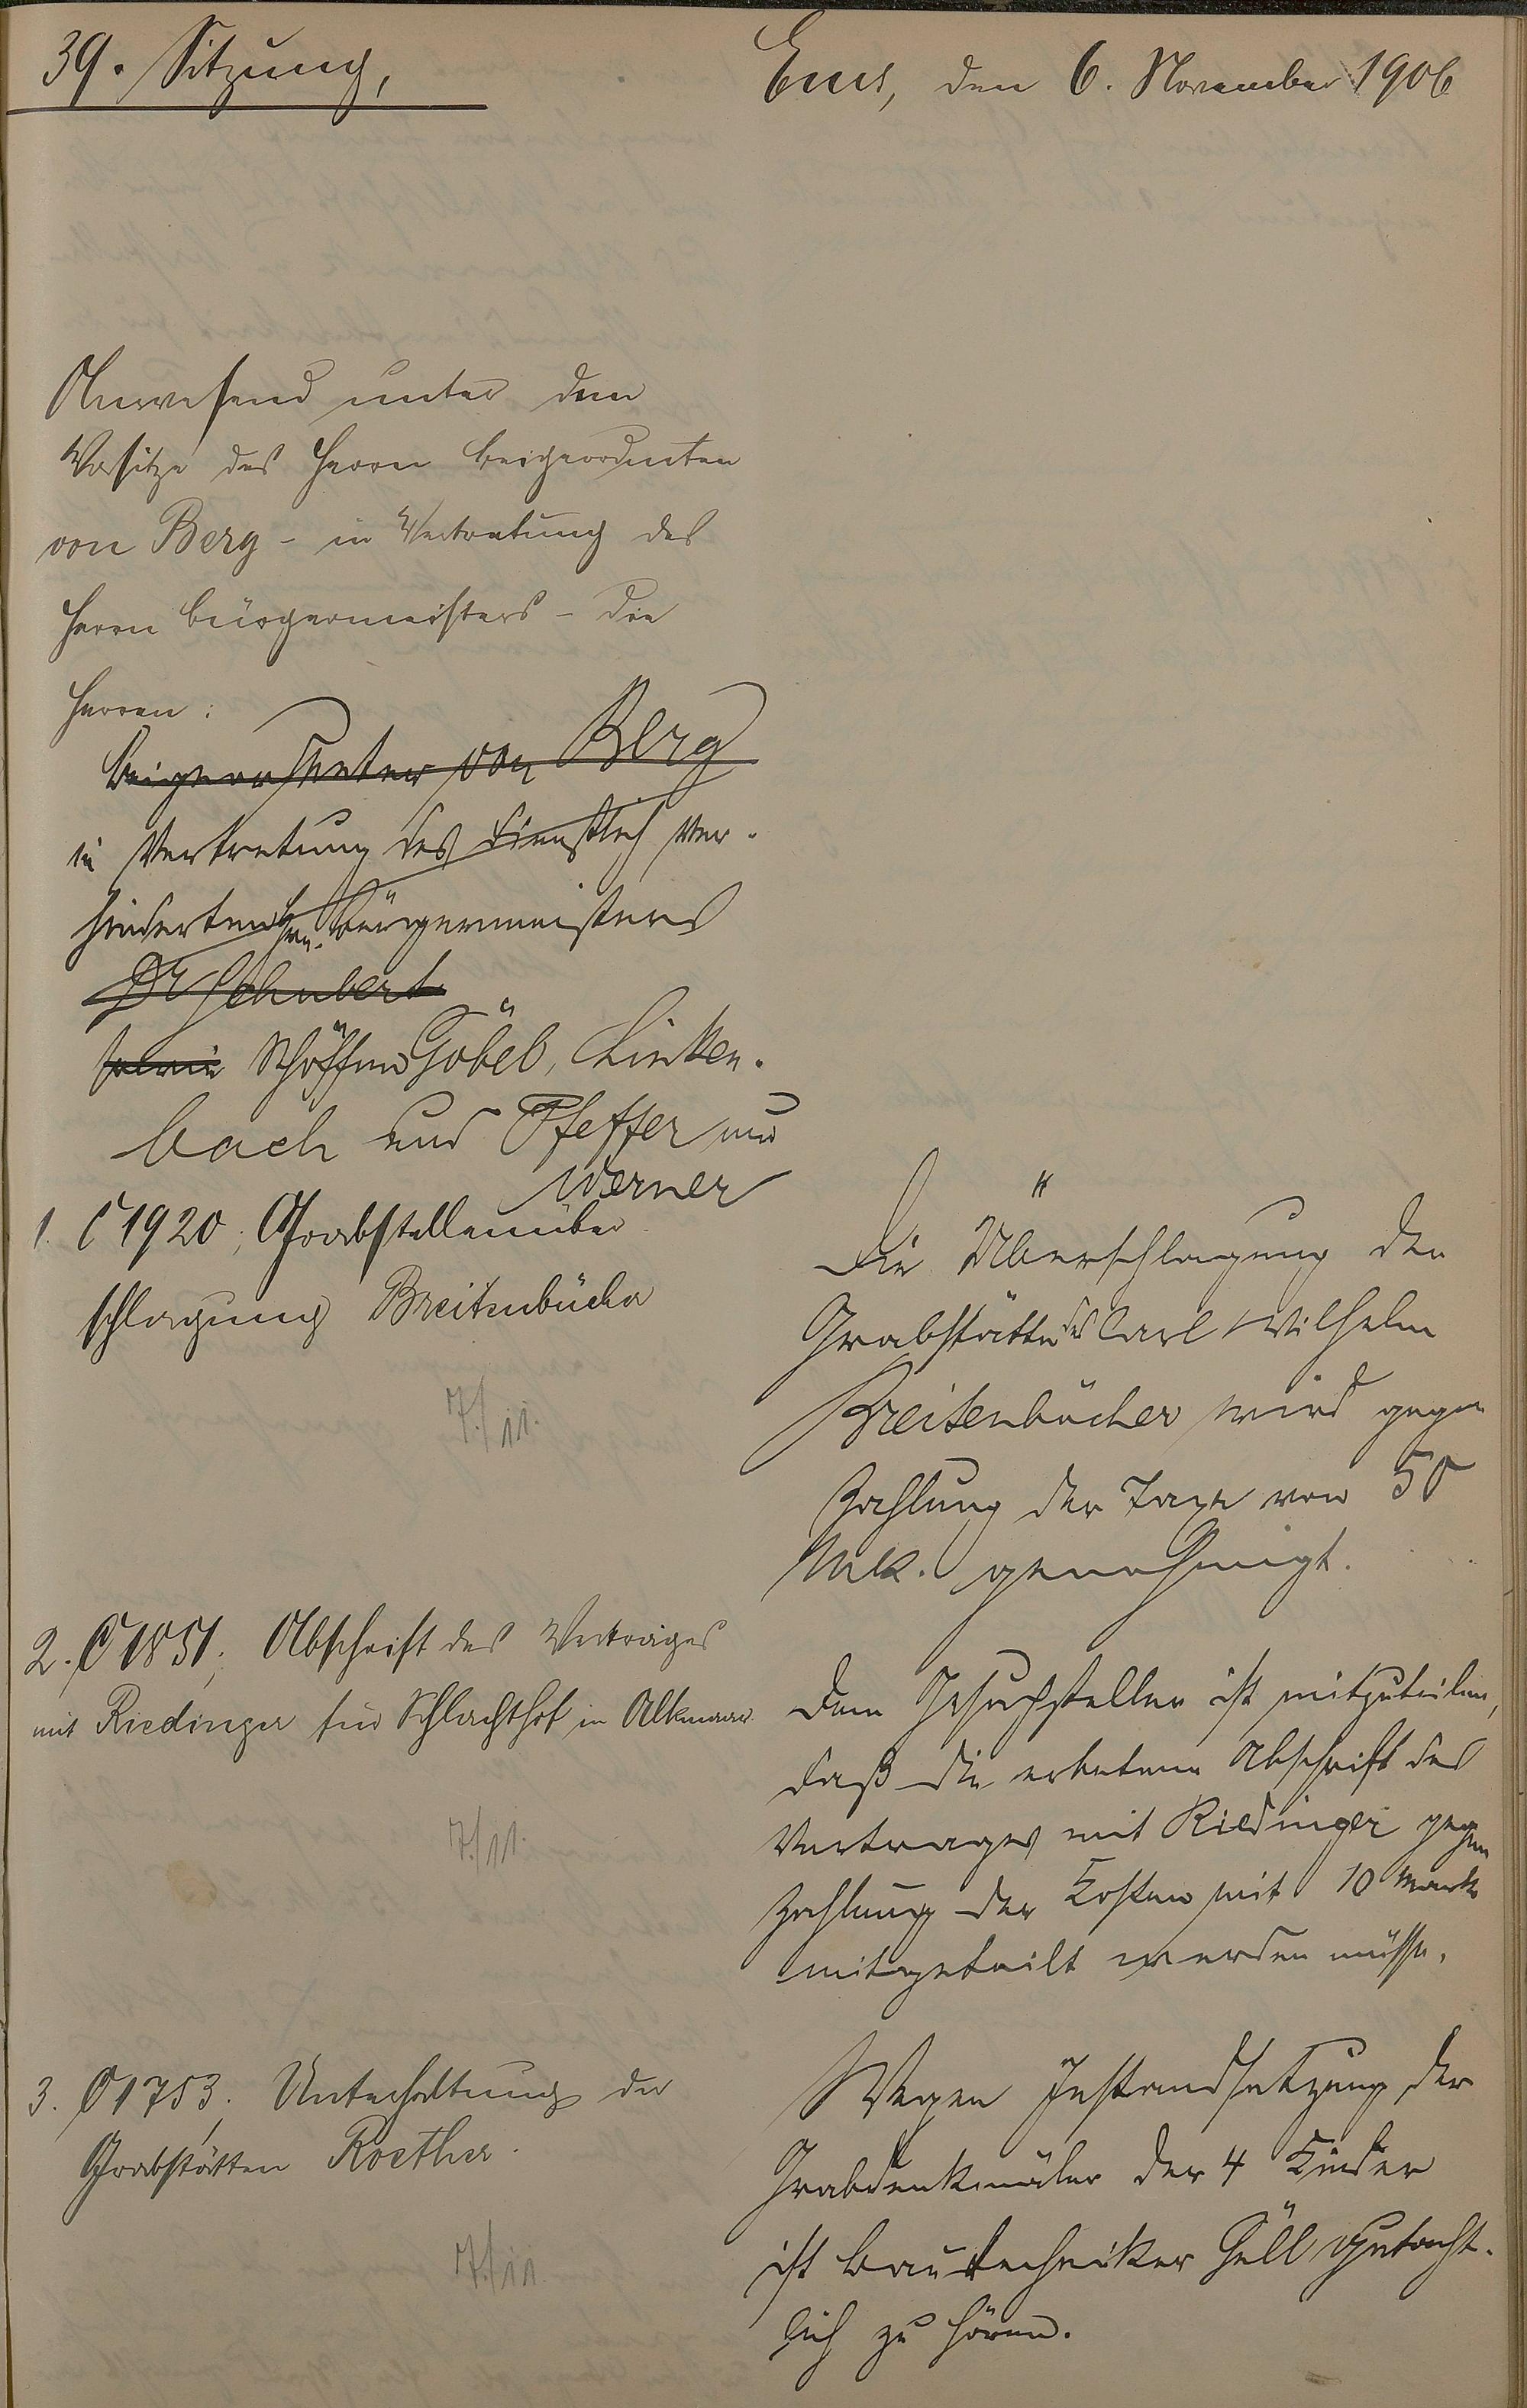 39. Sitzung,
Ems, den 6. November 1906
Anwesend unter dem
Vorsitze des Herrn Beigeordneten
von Berg - in Vertretung des
Herrn Bürgermeisters - die
Herren:
Beigeordneter von Berg
in Vertretung des dienstlich ver-
hinderten Hrn. Bürgermeisters
Dr Schubert
sowie Schöffen Göbel, Linken-
bach und Pfeffer und
Werner
1. C 1920; Grabstellenüber
schlagung Breitenbücher
7./11.
Die Überschlagung der
Grabstätte des Carl Wilhelm
Breitenbücher wird gegen
Zahlung der Taxe von 50
Mk. genehmigt.
2. C 1851; Abschrift des Vertrages
mit Riedinger für Schlachthof in Alkmaar
7./11.
Dem Gesuchsteller ist mitzuteilen,
daß die erbetene Abschrift des
Vertrages mit Riedinger gegen
Zahlung der Kosten mit 10 Mark
mitgeteilt werden müsse.
3. C 1753; Unterhaltung der
Grabstätten Roether.
7./11.
Wegen Instandsetzung der
Grabdenkmäler der 4 Kinder
ist Bautechniker Güll gutacht-
lich zu hören.